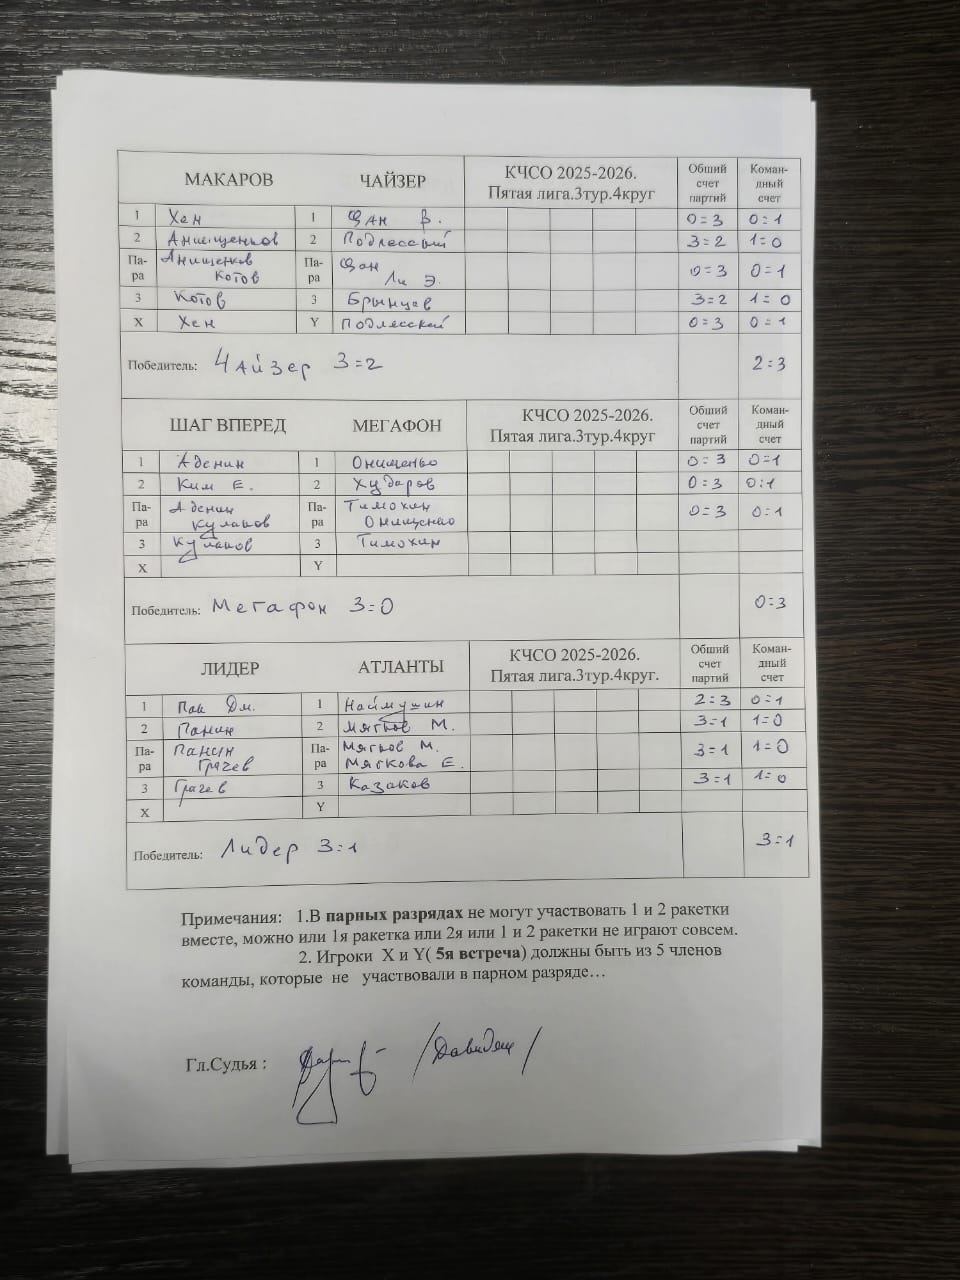 МАКАРОВ ЧАЙЗЕР КЧСО 2025-2026. Пятая лига.3тур.4круг Общий счет партий Коман-дный счет
1 Хен 1 Цан В. 0=3 0=1
2 Анищенков 2 Подлесский 3=2 1=0
Па-ра Анищенков Котов Па-ра Цан Ли Э. 0=3 0=1
3 Котов 3 Брынцев 3=2 1=0
X Хен Y Подлесский 0=3 0=1
Победитель: Чайзер 3=2 2=3
ШАГ ВПЕРЕД МЕГАФОН КЧСО 2025-2026. Пятая лига.3тур.4круг Общий счет партий Коман-дный счет
1 Аденин 1 Онищенко 0=3 0=1
2 Ким Е. 2 Хударов 0=3 0:1
Па-ра Аденин Кулаков Па-ра Тимохин Онищенко 0=3 0:1
3 Кулаков 3 Тимохин
X Y
Победитель: Мегафон 3=0 0=3
ЛИДЕР АТЛАНТЫ КЧСО 2025-2026. Пятая лига.3тур.4круг. Общий счет партий Коман-дный счет
1 Пак Дм. 1 Наймушин 2=3 0=1
2 Панин 2 Мягков М. 3=1 1=0
Па-ра Панин Грачев Па-ра Мягков М. Мягкова Е. 3=1 1=0
3 Грачев 3 Казаков 3=1 1=0
X Y
Победитель: Лидер 3=1 3=1
Примечания: 1.В парных разрядах не могут участвовать 1 и 2 ракетки
вместе, можно или 1я ракетка или 2я или 1 и 2 ракетки не играют совсем.
2. Игроки X и Y( 5я встреча) должны быть из 5 членов
команды, которые не участвовали в парном разряде…
Гл.Судья :